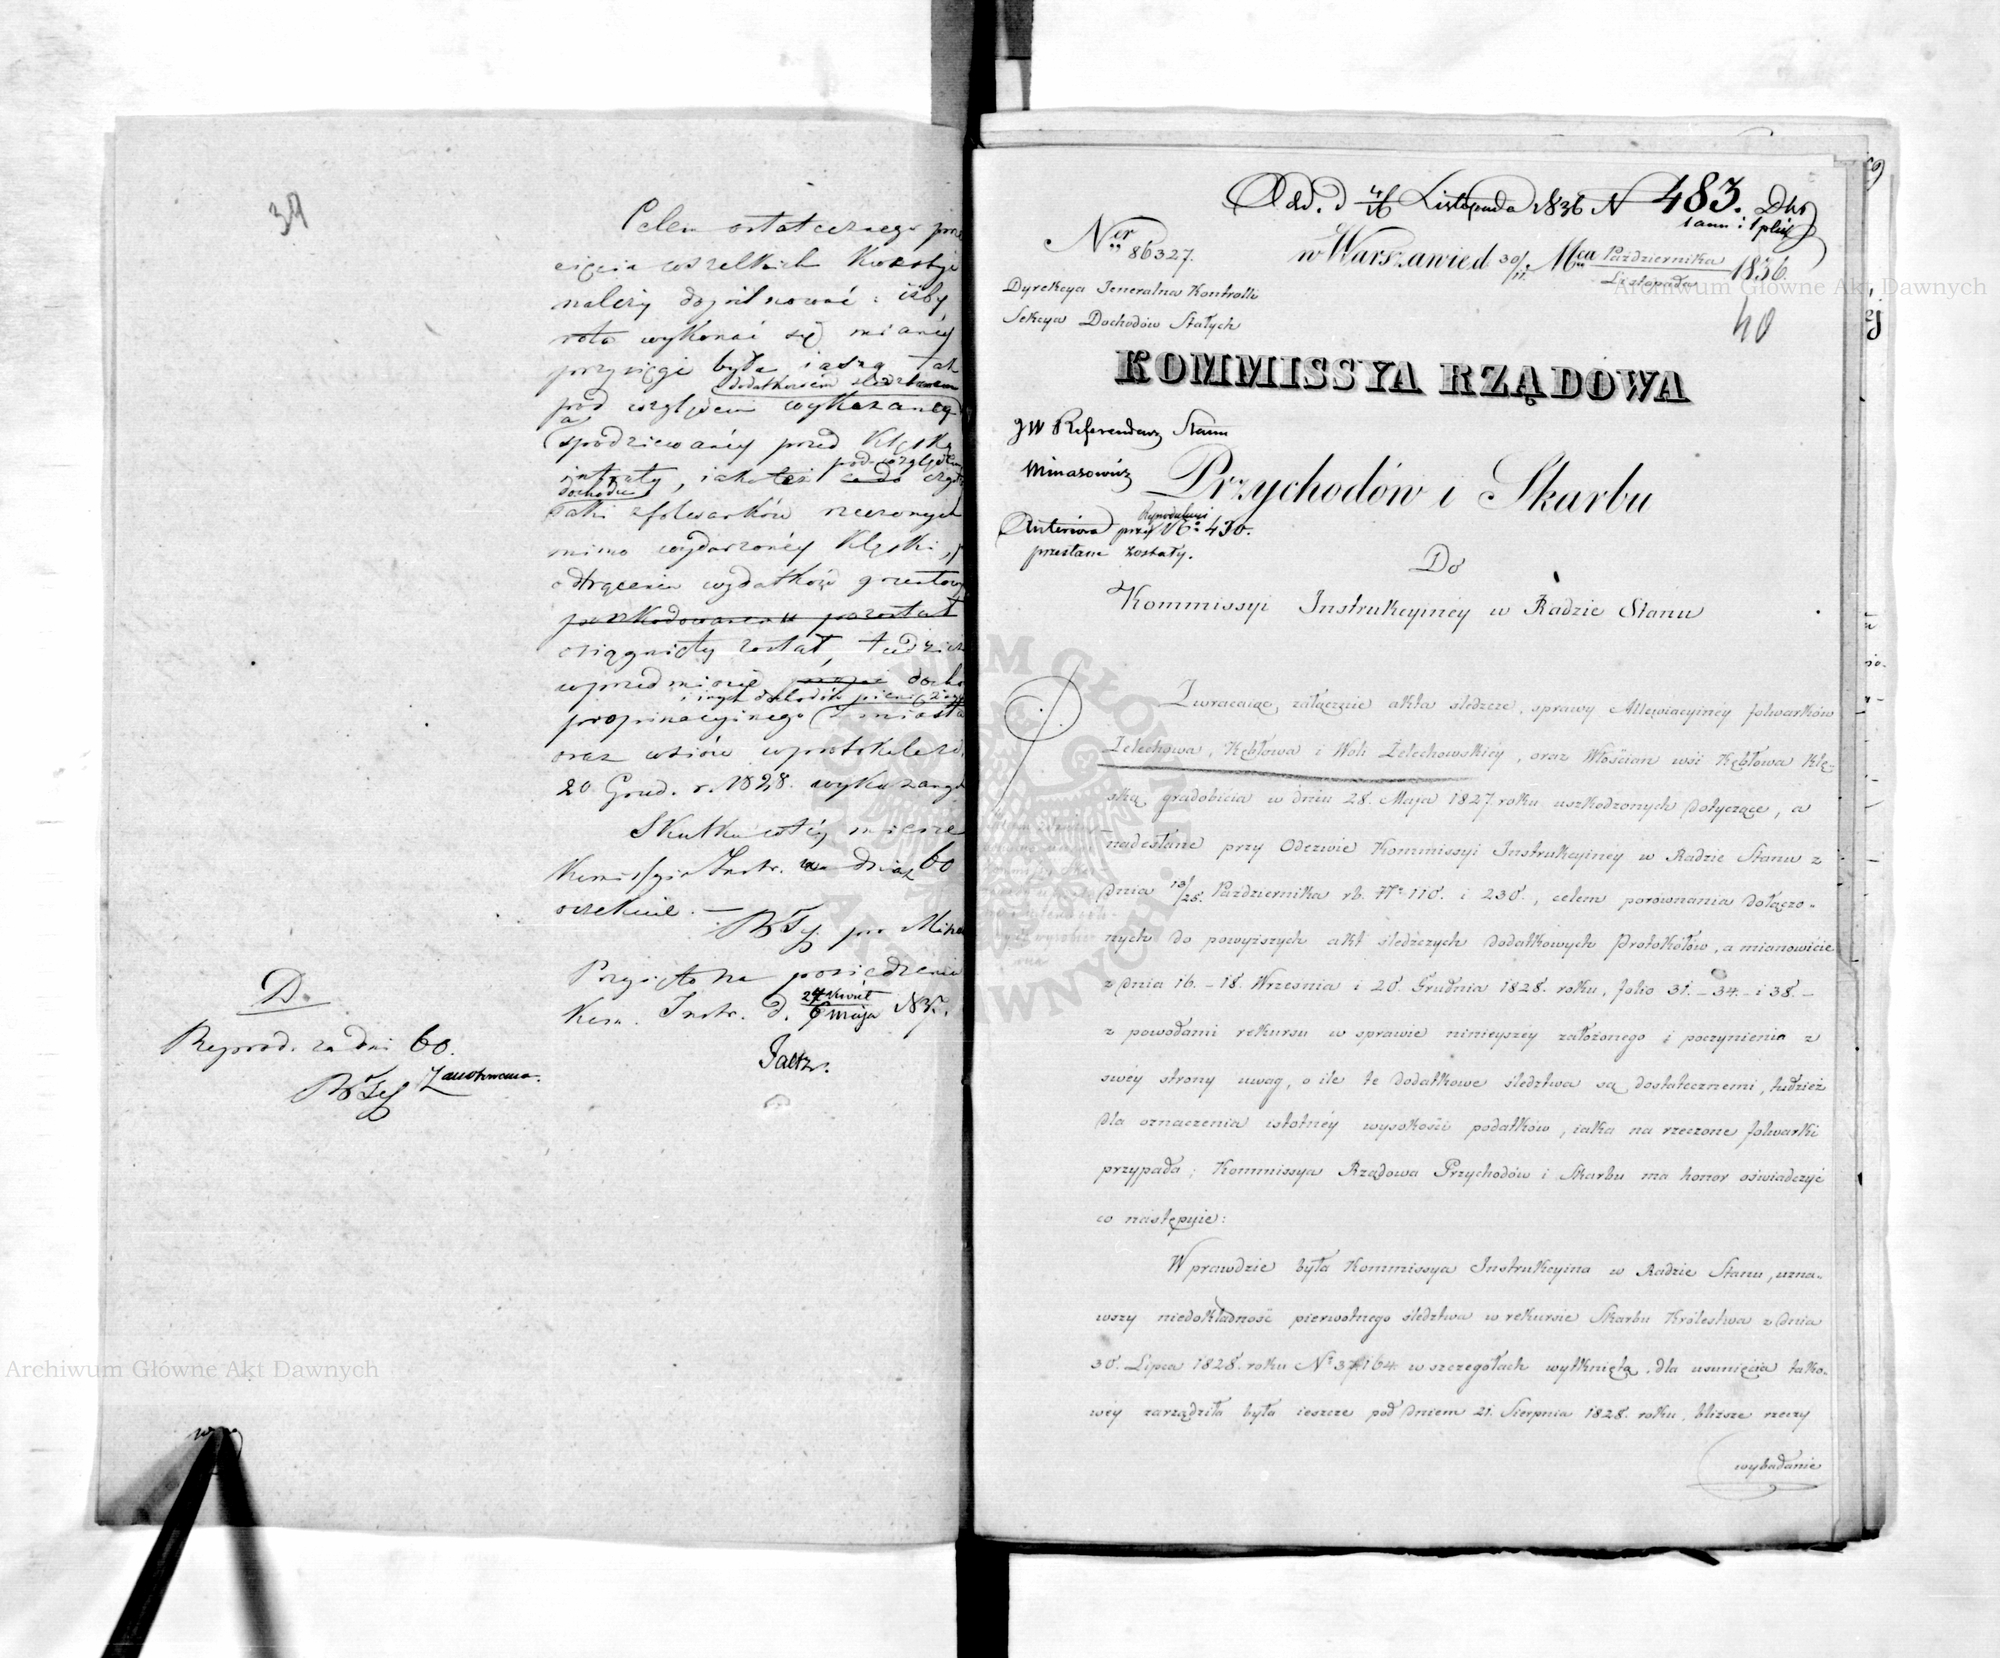 39
Celem ostatecznego prze
cięcia wszelkich kwestyi
należy dopilnować: iżby
rota wykonać się mianey
przysięgi była iasną tak
dodatkowém śledztwem
pod względem wykazaney
a
spodziewaney przed klęską
pod względem
intraty, iako też
dochodu
iaki z folwarków rzeczonych
mimo wydarzoney klęski,
odtrącenia wydatków gruntow
poszkodowanemu pozostał
osiągnięty został, tudzież
w przedmiocie docho
i innych dochodów pieniężnych
propinacyinego z miasta
oraz wsiów w protokule z d.
20 Grud. r. 1828. wykazanych
Skutku w tey mierze
Kommissyia Instr. dniach 60
oczekuie. —
Przyięto na posiedzeniu
Kom. Instr. d. 24 Kwiet / 6 Maja 1835.
D.
Reprod. za dni 60.
Odd. d 4/16 Listopada 1836 N 483. Dks
1 ann: i 1 plik
Ner 86327.
w Warszawie d 30/11. Mca Października / Listopada 1836.
40
Dyrekcya Jeneralna Kontrolli
Sekcya Dochodów Stałych
KOMMISSYA RZĄDOWA
JW Referendarz Stanu
Minasowicz
Przychodów i Skarbu
Anteriora przy No 430.
przesłane zostały.
Do
Kommissyi Instrukcyiney w Radzie Stanu
Zwracaiąc, załącznie akta śledcze, sprawy Allewiacyiney folwarków
Żelechowa, Kębłowa i Woli Żelechowskiey, oraz Włościan wsi Kębłowa klę-
ską gradobicia w dniu 28. Maja 1827 roku uszkodzonych dotyczące, a
nadesłane przy Odezwie Kommissyi Instrukcyiney w Radzie Stanu z
dnia 13/25. Października rb. Nr 110. i 230., celem porównania dołączo-
nych do powyższych akt śledczych dodatkowych Protokółów, a mianowicie
z dnia 16. – 18. Września i 20. Grudnia 1828. roku, folio 31. – 34. – i 38. –
z powodami rekursu w sprawie ninieyszey założonego i poczynienia z
swéy strony uwag, o ile te dodatkowe śledztwa są dostatecznemi, tudzież
dla oznaczenia istotnéy wysokości podatków, iaka na rzeczone folwarki
przypada; Kommissya Rządowa Przychodów i Skarbu ma honor oświadczyć
co następuie:
Wprawdzie była Kommissya Instrukcyina w Radzie Stanu, uzna-
wszy niedokładność pierwotnego śledztwa w rekursie Skarbu Królestwa z dnia
30. Lipca 1828. roku Nr 37164 w szczegółach wytkniętą, dla usunięcia tako-
wéy zarządziła była ieszcze pod dniem 21. Sierpnia 1828. roku, bliższe rzeczy
wybadanie
Archiwum Główne Akt Dawnych
Archiwum Główne Akt Dawnych